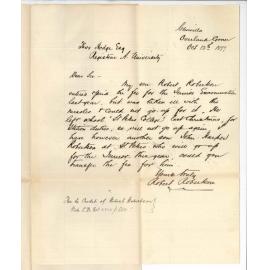 Overland Corner
Oct 13th 1897
Thos Hodge Esq
Registrar A. University
Dear Sir -
My son Robert Robertson
entered & paid the fee for the Junior Examination
last year, but was taken ill with the
measles & could not go up for it. He
left school St Peters College last Christmas, for
Station duties, so will not go up again
have however another son John
Robertson at St Peters who will go up
for the Junior this year, could you
transfer the fee for him
Yours truly
Robert Robertson